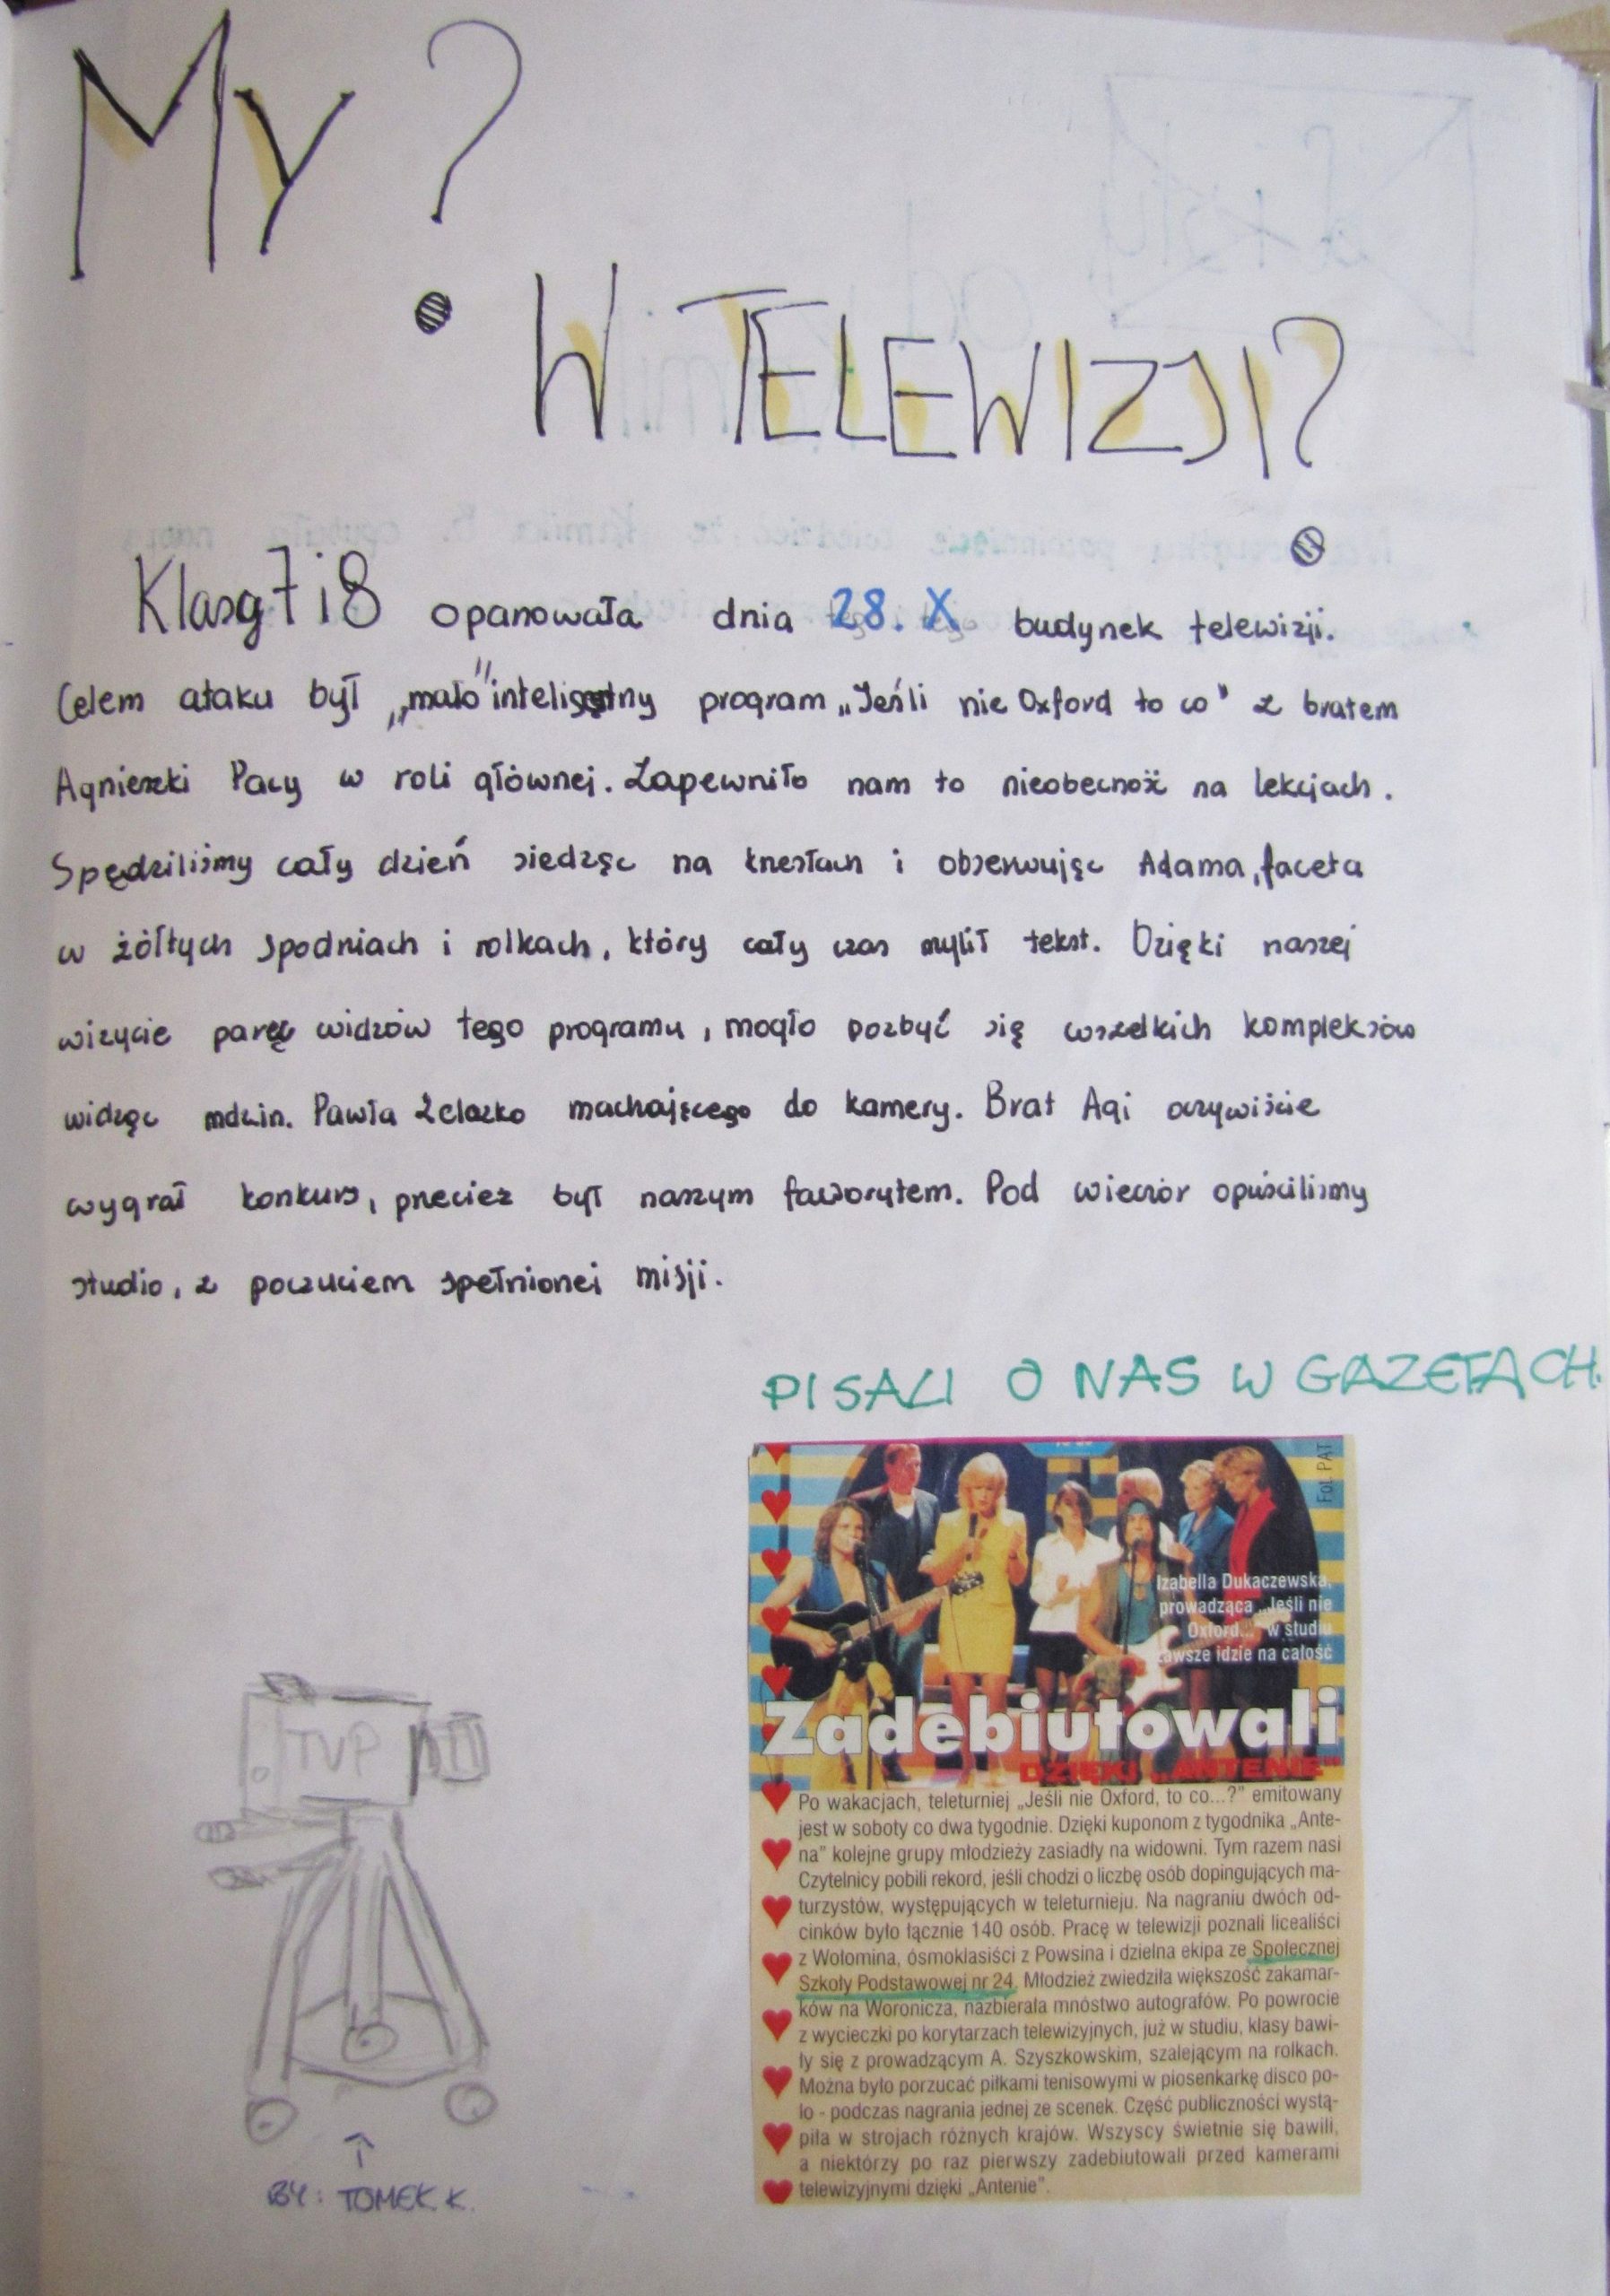 MY?
W TELEWIZJI?
Klasą 7 i 8 opanowała dnia 28. X budynek telewizji.
Celem ataku był „mało" inteligentny program „Jeśli nie Oxford to co" z bratem
Agnieszki Pacy w roli głównej. Zapewniło nam to nieobecność na lekcjach.
Spędziliśmy cały dzień siedząc na krzesłach i obserwując Adama, faceta
w żółtych spodniach i rolkach, który cały czas mylił tekst. Dzięki naszej
wizycie parę widzów tego programu, mogło pozbyć się wszelkich kompleksów
widząc mdzin. Pawła Żelazko machającego do kamery. Brat Agi oczywiście
wygrał konkurs, przecież był naszym faworytem. Pod wieczór opuściliśmy
studio, z poczuciem spełnionej misji.
PISALI O NAS W GAZETACH.
Fot. PAT
Izabella Dukaczewska,
prowadząca „Jeśli nie
Oxford..." w studiu
zawsze idzie na całość
Zadebiutowali
DZIĘKI „ANTENIE"
Po wakacjach, teleturniej „Jeśli nie Oxford, to co...?" emitowany
jest w soboty co dwa tygodnie. Dzięki kuponom z tygodnika „Ante-
na" kolejne grupy młodzieży zasiadły na widowni. Tym razem nasi
Czytelnicy pobili rekord, jeśli chodzi o liczbę osób dopingujących ma-
turzystów, występujących w teleturnieju. Na nagraniu dwóch od-
cinków było łącznie 140 osób. Pracę w telewizji poznali licealiści
z Wołomina, ósmoklasiści z Powsina i dzielna ekipa ze Społecznej
Szkoły Podstawowej nr 24. Młodzież zwiedziła większość zakamar-
ków na Woronicza, nazbierała mnóstwo autografów. Po powrocie
z wycieczki po korytarzach telewizyjnych, już w studiu, klasy bawi-
ły się z prowadzącym A. Szyszkowskim, szalejącym na rolkach.
Można było porzucać piłkami tenisowymi w piosenkarkę disco po-
lo - podczas nagrania jednej ze scenek. Część publiczności wystą-
piła w strojach różnych krajów. Wszyscy świetnie się bawili,
a niektórzy po raz pierwszy zadebiutowali przed kamerami
telewizyjnymi dzięki „Antenie".
TVP
BY: TOMEK K.